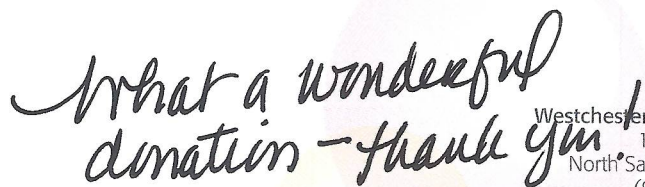 What a wonderful
donation – thank you!
Westchester
1
North Sa
(